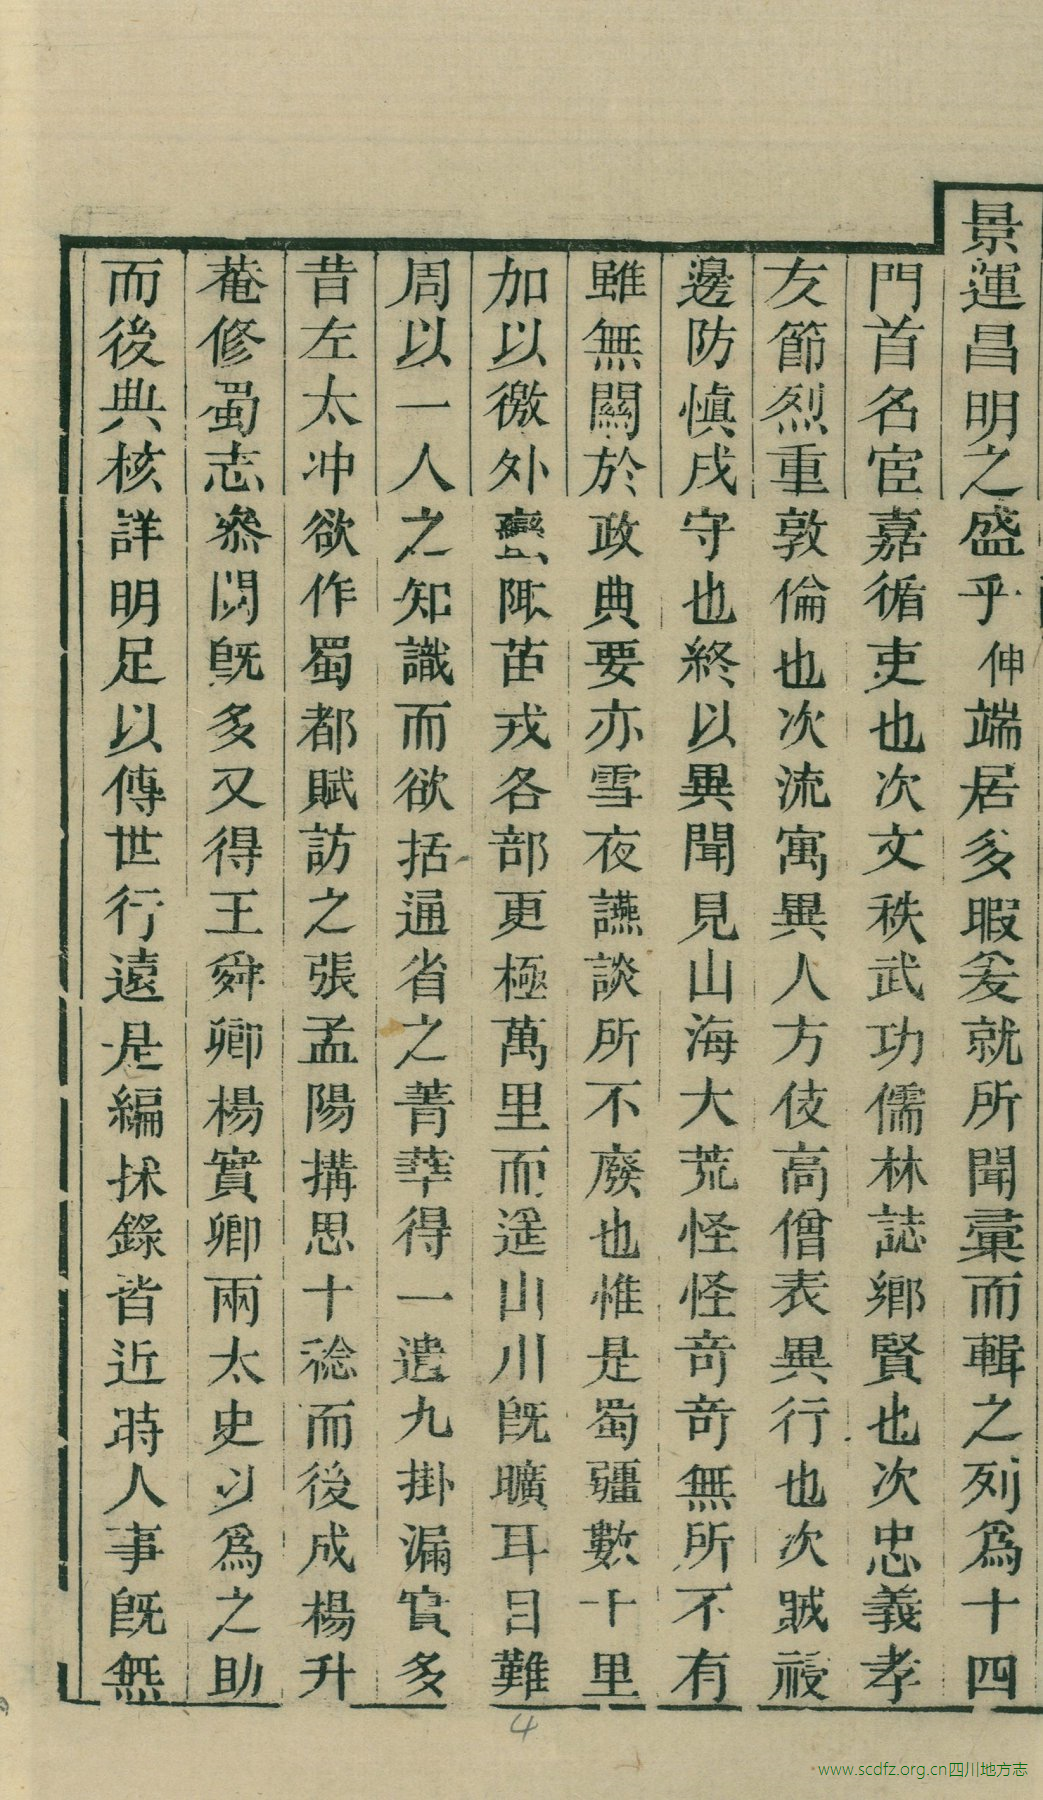 景運昌明之盛乎伸端居多暇爰就所聞彙而輯之列爲十四
門首名宦嘉循吏也次文秩武功儒林誌鄉賢也次忠義孝
友節烈重敦倫也次流寓異人方伎高僧表異行也次賊祲
邊防愼戍守也終以異聞見山海大荒怪怪奇奇無所不有
雖無關於政典要亦雪夜讌談所不廢也惟是蜀疆數十里
加以徼外蠻陬苗戎各部更極萬里而遥山川旣曠耳目難
周以一人之知識而欲括通省之菁華得一遺九掛漏實多
昔左太冲欲作蜀都賦訪之張孟陽搆思十稔而後成楊升
菴修蜀志叅閱旣多又得王舜卿楊實卿兩太史以爲之助
而後典核詳明足以傳世行遠是編採錄皆近時人事旣無
4
www.scdfz.org.cn四川地方志